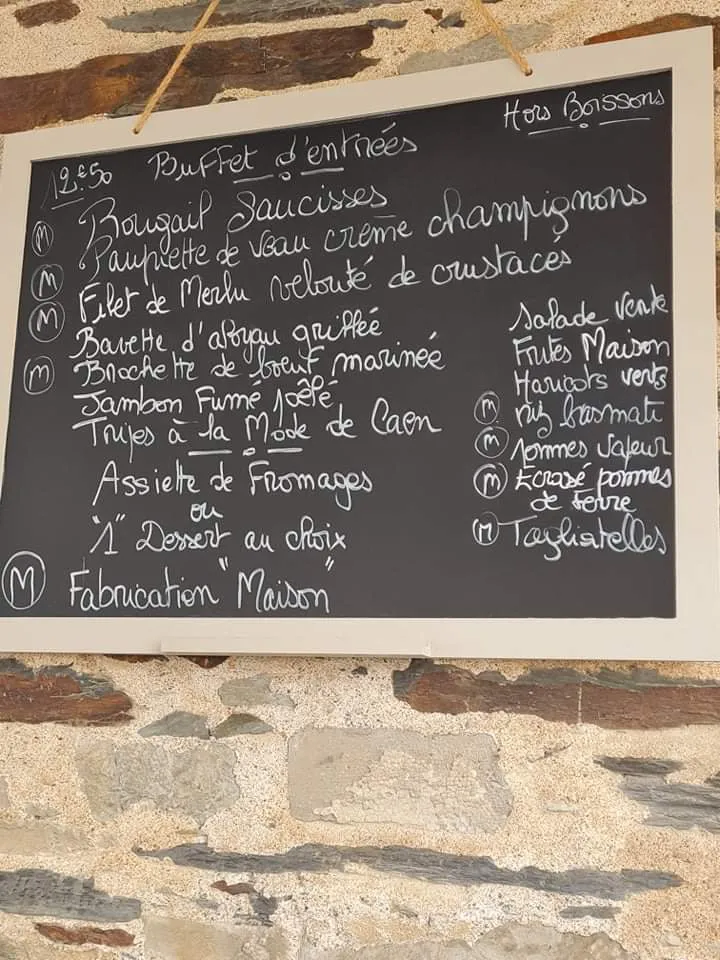 Hors Boissons
12€50 Buffet d'entrées
M Rougail Saucisses
M Paupiette de veau crème champignons
M Filet de Merlu velouté de crustacés
Bavette d'aloyau grillée
M Brochette de boeuf marinée
Jambon Fumé poêlé
Tripes à la Mode de Caen
Assiette de Fromages
ou
"1" Dessert au choix
M Fabrication "Maison"
Salade verte
Frites Maison
Haricots verts
M riz basmati
M pommes vapeur
M Ecrasé pommes
de terre
M Tagliatelles